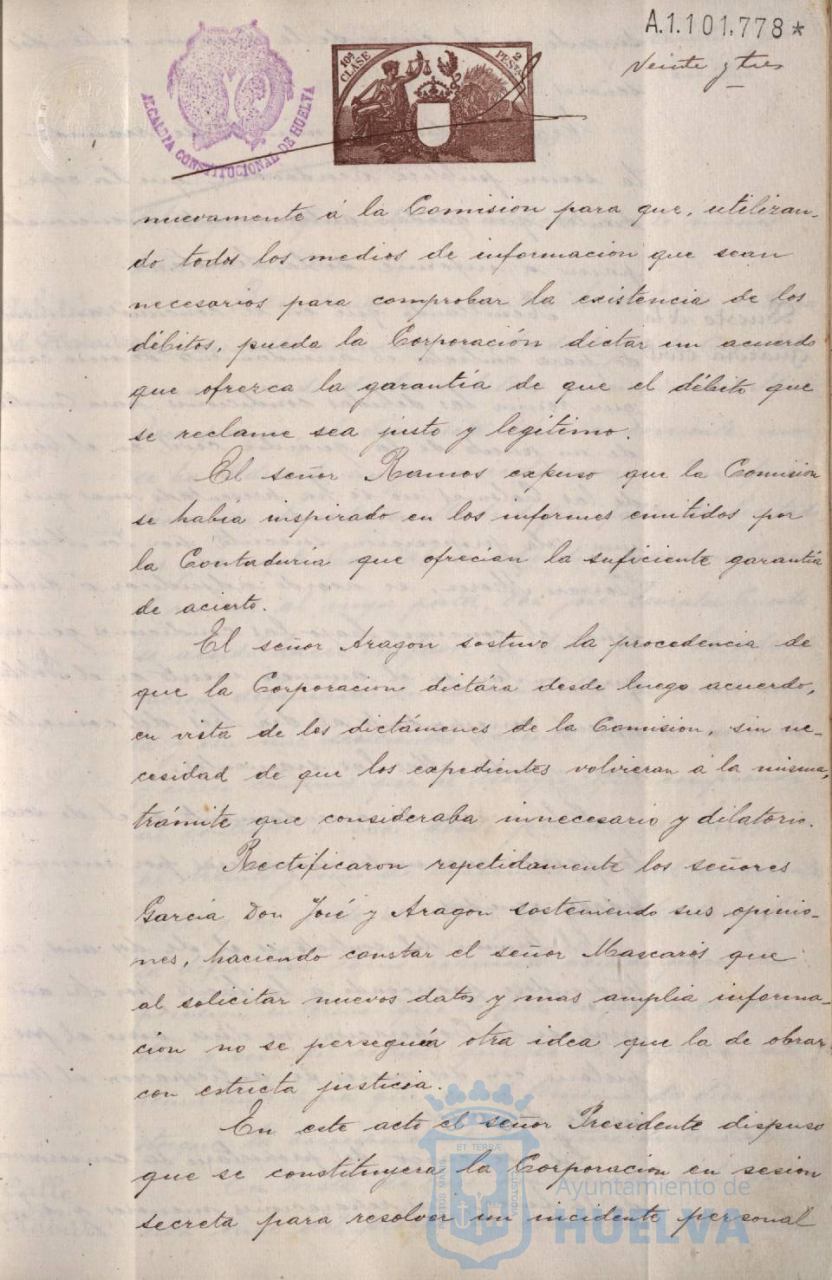 A.1.101.778*
Veinte y tres
ALCALDIA CONSTITUCIONAL DE HUELVA
10ª CLASE
2 PESETAS
nuevamente á la Comision para que, utilizan-
do todos los medios de informacion que sean
necesarios para comprobar la existencia de los
débitos, pueda la Corporación dictar un acuerdo
que ofrezca la garantía de que el débito que
se reclame sea justo y legítimo.
El señor Ramos expuso que la Comision
se había inspirado en los informes emitidos por
la Contaduría que ofrecian la suficiente garantía
de acierto.
El señor Aragon sostuvo la procedencia de
que la Corporacion dictára desde luego acuerdo,
en vista de los dictámenes de la Comision, sin ne-
cesidad de que los expedientes volvieran á la misma,
trámite que consideraba innecesario y dilatorio.
Rectificaron repetidamente los señores
García Don José y Aragon sosteniendo sus opinio-
nes, haciendo constar el señor Mascarós que
al solicitar nuevos datos y mas amplia informa-
cion no se perseguía otra idea que la de obrar
con estricta justicia.
En este acto el señor Presidente dispuso
que se constituyera la Corporacion en sesion
secreta para resolver un incidente personal
Ayuntamiento de
HUELVA